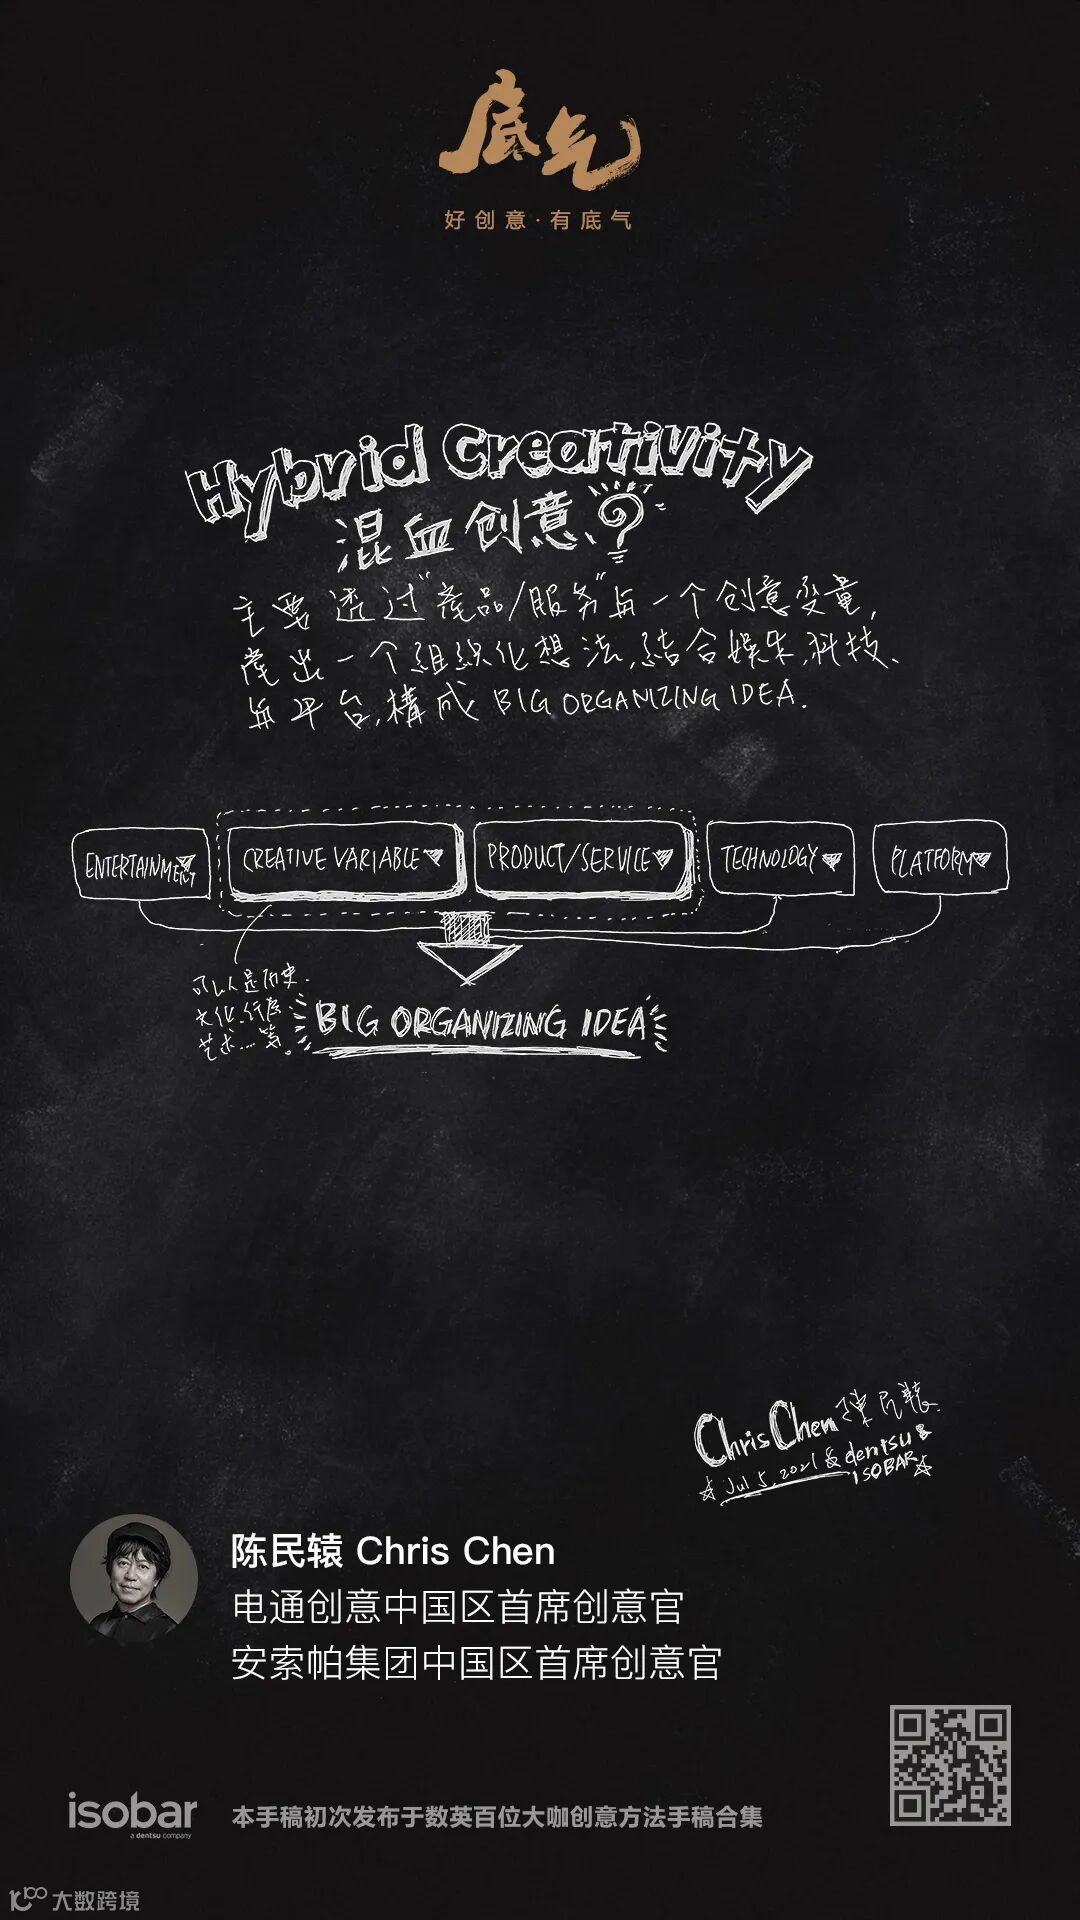 底气
好创意·有底气
Hybrid Creativity
混血创意
主要透过“産品/服务”与一个创意变量,
産出一个组织化想法,結合娱乐,科技、
与平台,構成 BIG ORGANIZING IDEA.
ENTERTAINMENT CREATIVE VARIABLE PRODUCT/SERVICE TECHNOLOGY PLATFORM
可以是历史.
文化.行为
艺术...等。
BIG ORGANIZING IDEA
Chris Chen 陳民轅
Jul 5, 2021 & dentsu &
ISOBAR
陈民辕 Chris Chen
电通创意中国区首席创意官
安索帕集团中国区首席创意官
isobar
a dentsu company
本手稿初次发布于数英百位大咖创意方法手稿合集
大数跨境